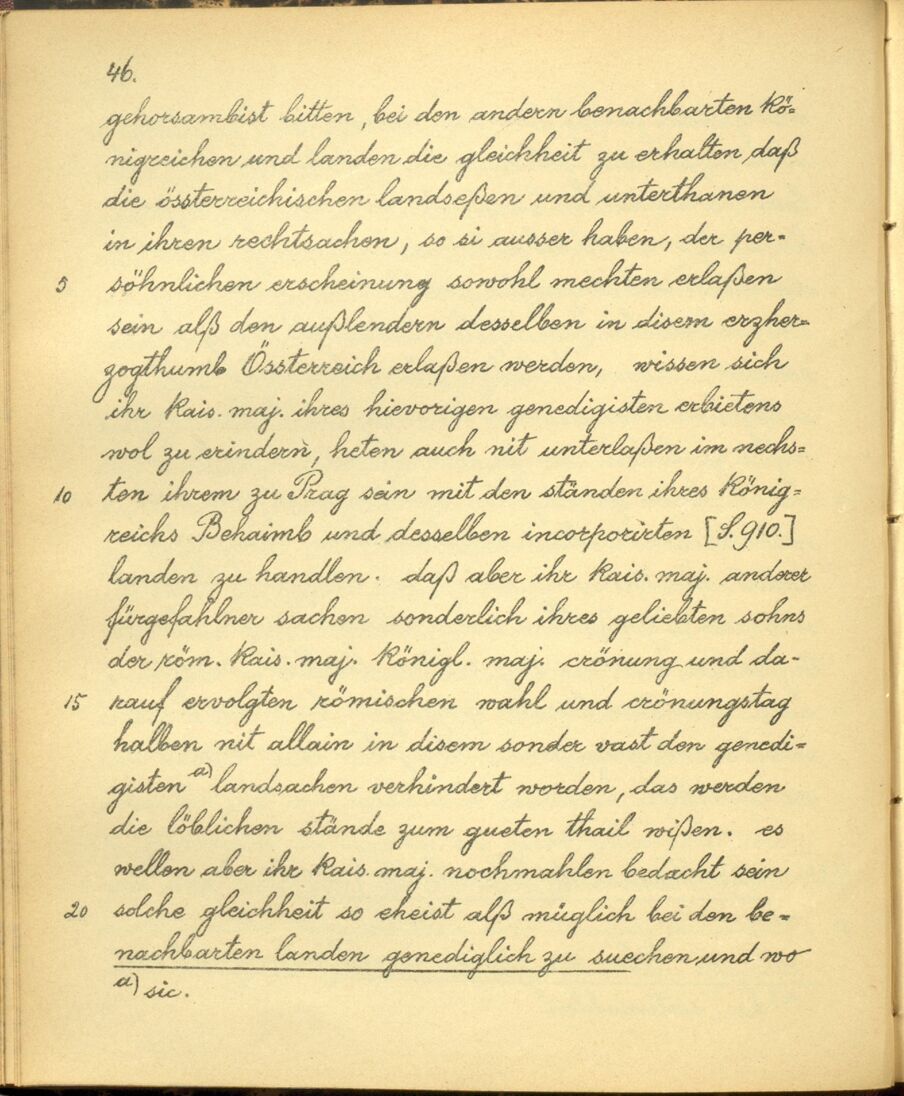 46.
gehorsambist bitten, bei den andern benachbarten Kö=
nigreichen und landen die gleichheit zu erhalten, daß
die össterreichischen landseßen und unterthanen
in ihren rechtsachen, so si ausser haben, der per=
5 söhnlichen erscheinung sowohl mechten erlaßen
sein alß den außlendern desselben in disem erzher=
zogthumb Össterreich erlaßen werden, wissen sich
ihr Kais. maj. ihres hievorigen genedigisten erbietens
wol zu erindern, heten auch nit unterlaßen im nechs=
10 ten ihrem zu Prag sein mit den ständen ihres König=
reichs Behaimb und desselben incorporirten [S. 910.]
landen zu handlen. daß aber ihr Kais. maj. anderer
fürgefahlner sachen sonderlich ihres geliebten sohns
der röm. Kais. maj. Königl. maj. crönung und da-
15 rauf ervolgten römischen wahl und crönungstag
halben nit allain in disem sonder vast den genedi=
gisten a) landsachen verhindert worden, das werden
die löblichen stände zum gueten thail wißen. es
wellen aber ihr Kais. maj. nochmahlen bedacht sein
20 solche gleichheit so eheist alß müglich bei den be=
nachbarten landen genediglich zu suechen und wo
a) sic.